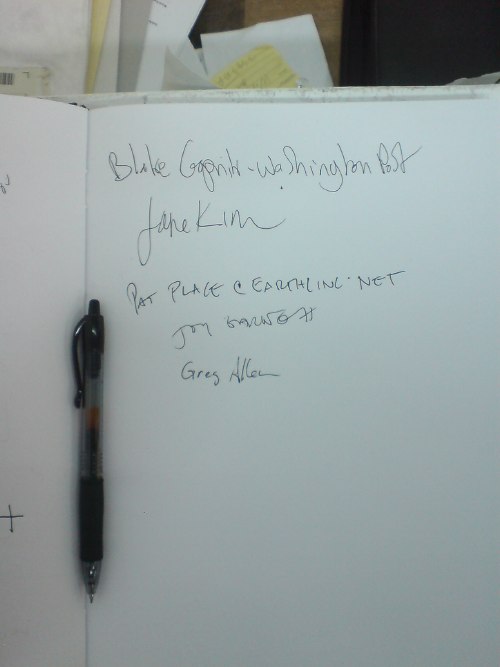 Blake Gopnik - Washington Post
Jane Kim
PAT PLACE @ EARTHLINK.NET
Greg Allen